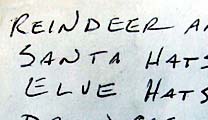 REINDEER
SANTA HATS
ELVE HATS